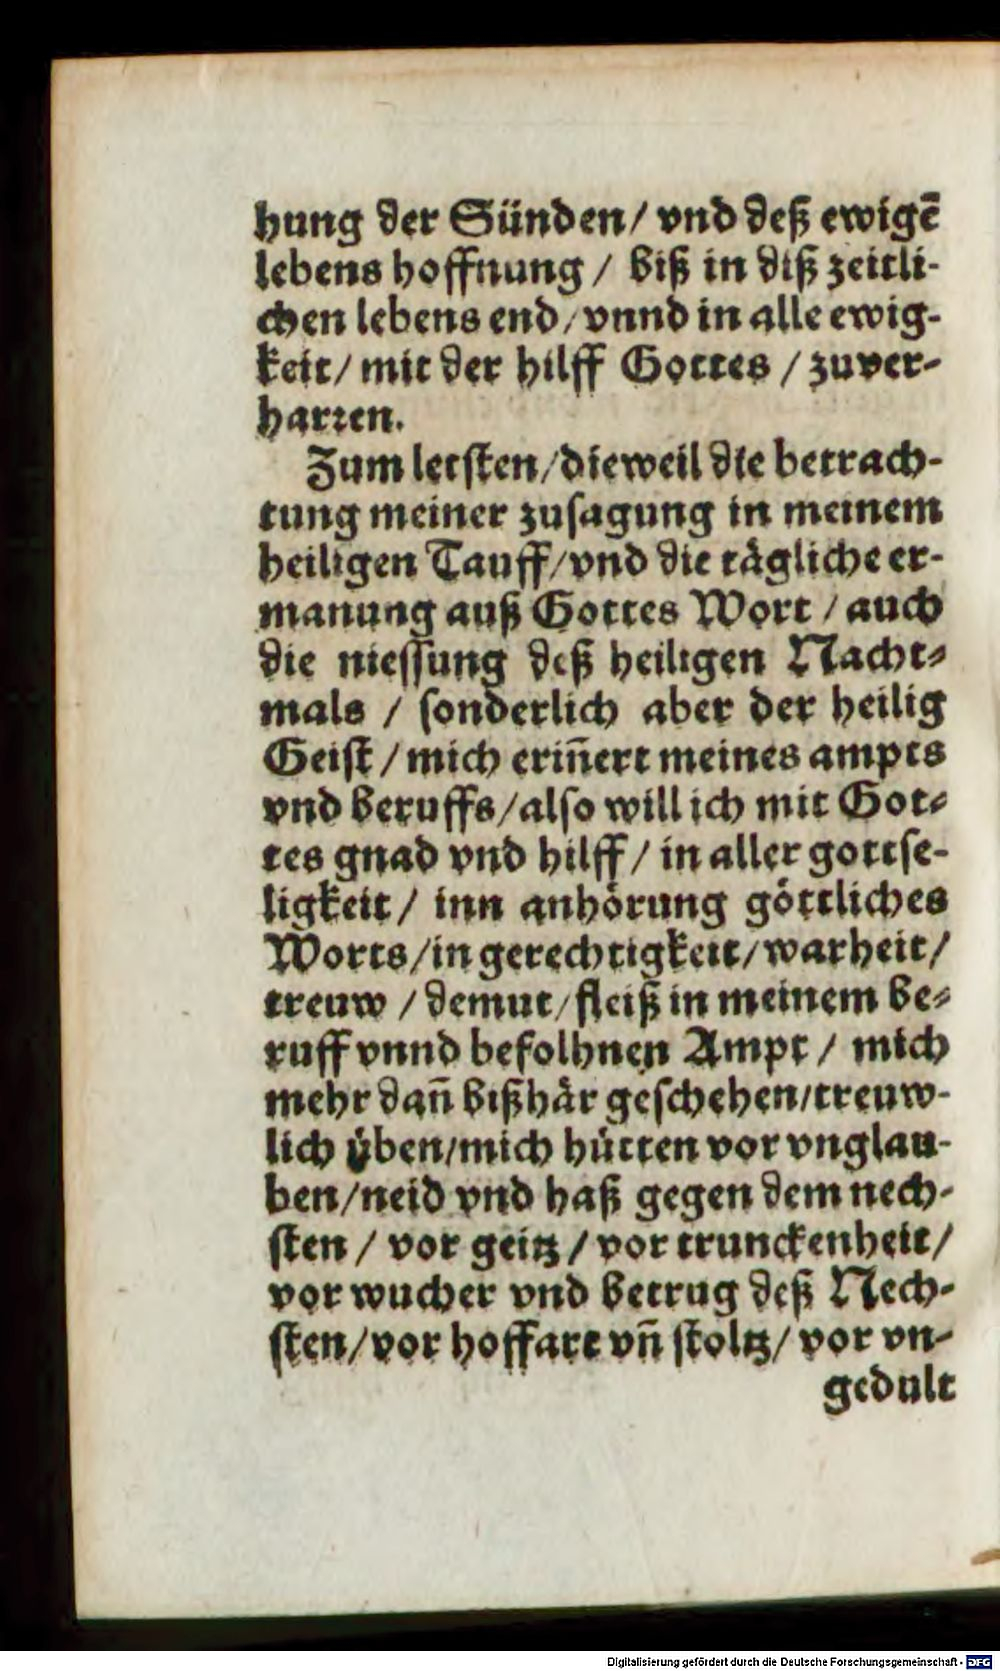 hung der Sünden/ vnd deß ewigē
lebens hoffnung / biß in diß zeitli-
chen lebens end/ vnnd in alle ewig-
keit/ mit der hilff Gottes / zuver-
harꝛen.
Zum letſten/dieweil die betrach-
tung meiner zuſagung in meinem
heiligen Tauff/vnd die tägliche er-
manung auß Gottes Wort / auch
die nieſſung deß heiligen Nacht-
mals / ſonderlich aber der heilig
Geiſt / mich erin̄ert meines ampts
vnd beruffs/alſo will ich mit Got-
tes gnad vnd hilff/ in aller gottſe-
ligkeit/ inn anhörung göttliches
Worts/in gerechtigkeit/warheit/
treuw / demut/ fleiß in meinem be-
ruff vnnd befolhnen Ampt / mich
mehr dan̄ bißhär geſchehen/treuw-
lich üben/mich hütten vor vnglau-
ben/neid vnd haß gegen dem nech-
ſten / vor geitz / vor trunckenheit/
vor wucher vnd betrug deß Nech-
ſten/vor hoffart vn̄ ſtoltz/ vor vn-
gedult
Digitalisierung gefördert durch die Deutsche Forschungsgemeinschaft - DFG